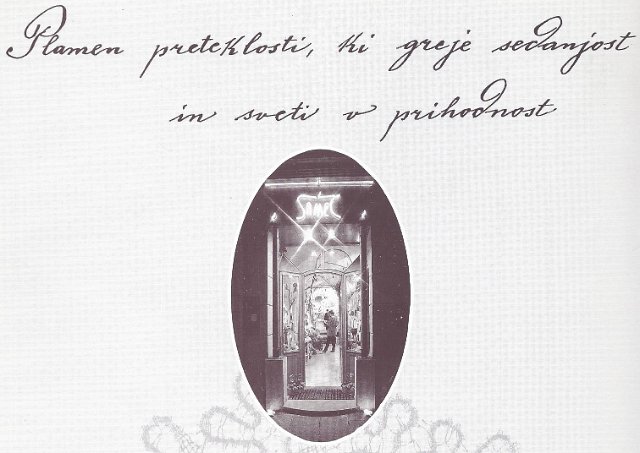 Plamen preteklosti, ki greje sedanjost
in sveti v prihodnost
SAMEC